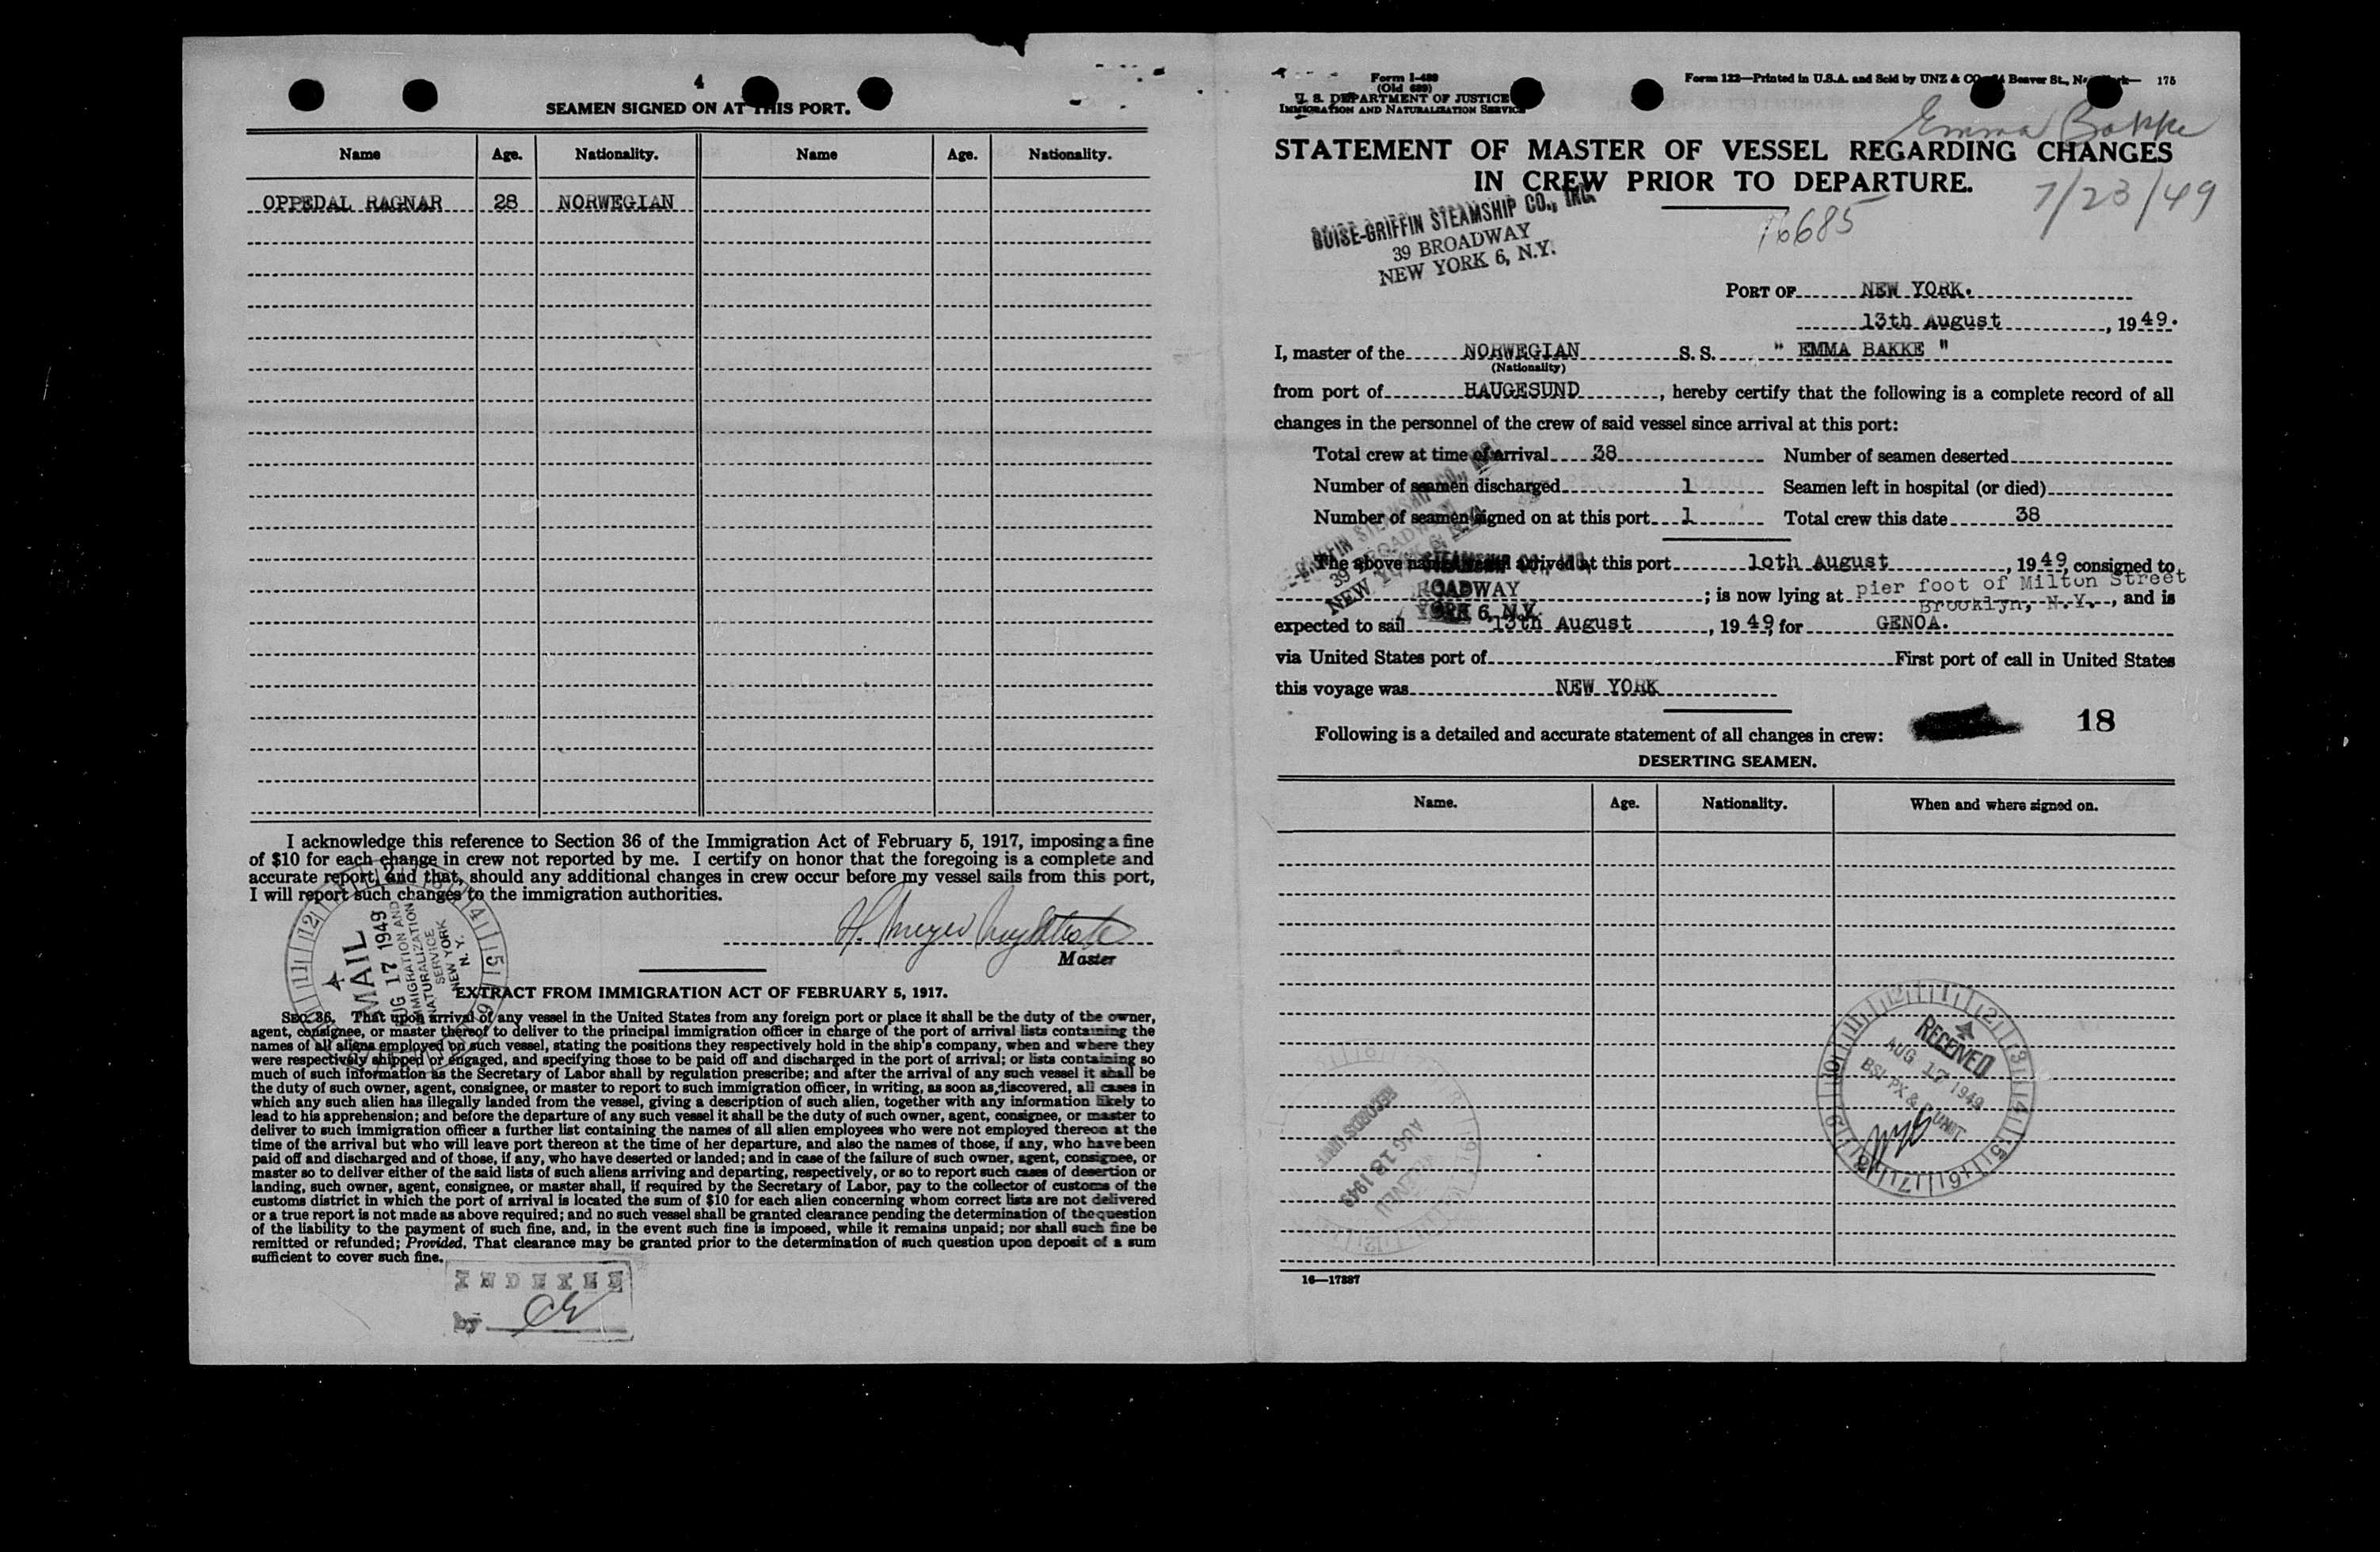 4
SEAMEN SIGNED ON AT THIS PORT.
Name Age. Nationality. Name Age. Nationality.
OPPEDAL RAGNAR 28 NORWEGIAN
I acknowledge this reference to Section 36 of the Immigration Act of February 5, 1917, imposing a fine
of $10 for each change in crew not reported by me. I certify on honor that the foregoing is a complete and
accurate report, and that, should any additional changes in crew occur before my vessel sails from this port,
I will report such changes to the immigration authorities.
MAIL
AUG 17 1949
IMMIGRATION AND
NATURALIZATION
SERVICE
NEW YORK
N. Y.
Master
EXTRACT FROM IMMIGRATION ACT OF FEBRUARY 5, 1917.
SEC. 36. That upon arrival of any vessel in the United States from any foreign port or place it shall be the duty of the owner,
agent, consignee, or master thereof to deliver to the principal immigration officer in charge of the port of arrival lists containing the
names of all aliens employed on such vessel, stating the positions they respectively hold in the ship's company, when and where they
were respectively shipped or engaged, and specifying those to be paid off and discharged in the port of arrival; or lists containing so
much of such information as the Secretary of Labor shall by regulation prescribe; and after the arrival of any such vessel it shall be
the duty of such owner, agent, consignee, or master to report to such immigration officer, in writing, as soon as discovered, all cases in
which any such alien has illegally landed from the vessel, giving a description of such alien, together with any information likely to
lead to his apprehension; and before the departure of any such vessel it shall be the duty of such owner, agent, consignee, or master to
deliver to such immigration officer a further list containing the names of all alien employees who were not employed thereon at the
time of the arrival but who will leave port thereon at the time of her departure, and also the names of those, if any, who have been
paid off and discharged and of those, if any, who have deserted or landed; and in case of the failure of such owner, agent, consignee, or
master so to deliver either of the said lists of such aliens arriving and departing, respectively, or so to report such cases of desertion or
landing, such owner, agent, consignee, or master shall, if required by the Secretary of Labor, pay to the collector of customs of the
customs district in which the port of arrival is located the sum of $10 for each alien concerning whom correct lists are not delivered
or a true report is not made as above required; and no such vessel shall be granted clearance pending the determination of the question
of the liability to the payment of such fine, and, in the event such fine is imposed, while it remains unpaid; nor shall such fine be
remitted or refunded; Provided, That clearance may be granted prior to the determination of such question upon deposit of a sum
sufficient to cover such fine.
INDEXED
by
Form I-489
(Old 689)
U. S. DEPARTMENT OF JUSTICE
IMMIGRATION AND NATURALIZATION SERVICE
Form 122—Printed in U.S.A. and Sold by UNZ & CO. Beaver St., New York— 175
Emma Bakke
STATEMENT OF MASTER OF VESSEL REGARDING CHANGES
IN CREW PRIOR TO DEPARTURE.
7/23/49
16685
BOISE-GRIFFIN STEAMSHIP CO., INC.
39 BROADWAY
NEW YORK 6, N.Y.
PORT OF NEW YORK.
13th August, 1949.
I, master of the NORWEGIAN S. S. " EMMA BAKKE "
(Nationality)
from port of HAUGESUND, hereby certify that the following is a complete record of all
changes in the personnel of the crew of said vessel since arrival at this port:
Total crew at time of arrival 38 Number of seamen deserted
Number of seamen discharged 1 Seamen left in hospital (or died)
Number of seamen signed on at this port 1 Total crew this date 38
The above named vessel arrived at this port 10th August, 1949, consigned to
; is now lying at pier foot of Milton Street
Brooklyn, N.Y., and is
expected to sail 13th August, 1949, for GENOA.
via United States port of First port of call in United States
this voyage was NEW YORK
18
Following is a detailed and accurate statement of all changes in crew:
DESERTING SEAMEN.
Name. Age. Nationality. When and where signed on.
RECEIVED
AUG 17 1949
UNIT
RECORDS UNIT
AUG 18 1949
16—17887